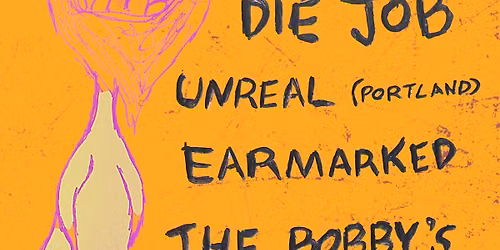 DIE JOB
UNREAL (PORTLAND)
EARMARKED
THE BOBBY'S